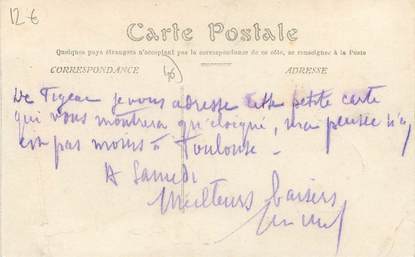 12 €
Carte Postale
Quelques pays étrangers n'acceptent pas la correspondance de ce côté, se renseigner à la Poste
CORRESPONDANCE
(46)
ADRESSE
De Figeac je vous adresse cette petite carte
qui vous montrera qu'éloigné, ma pensée n'y
est pas moins à Toulouse -
A Samedi
Meilleurs baisers